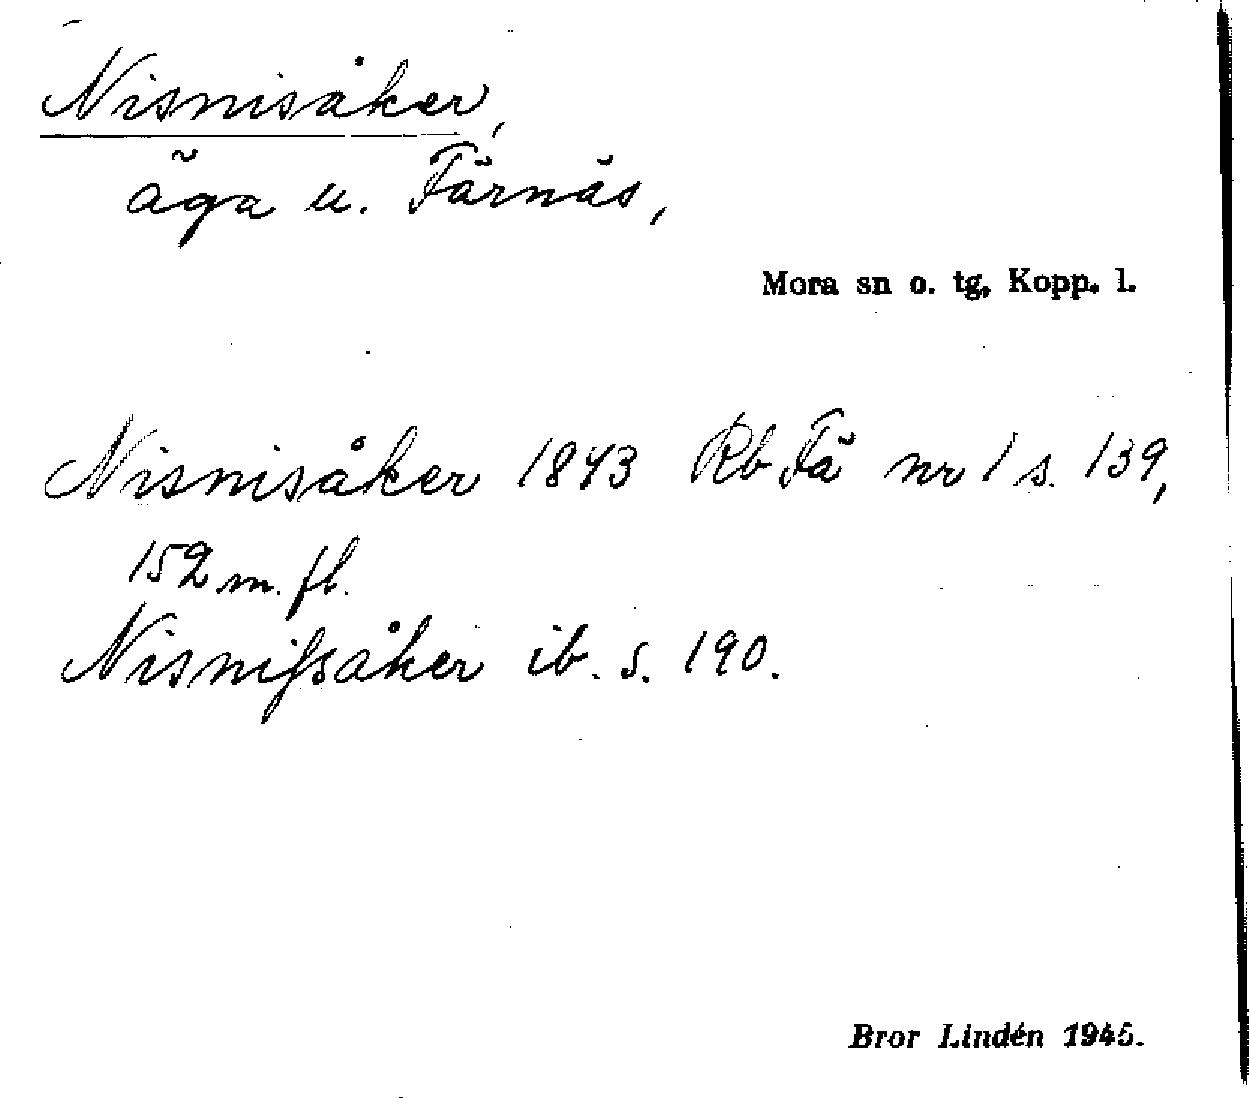 Nisnisåker,
äga u. Färnäs,
Mora sn o. tg, Kopp. l.
Nisnisåker 1843 Rb Fä nr 1 s. 139,
152 m. fl.
Nisnifsåker ib. s. 190.
Bror Lindén 1945.